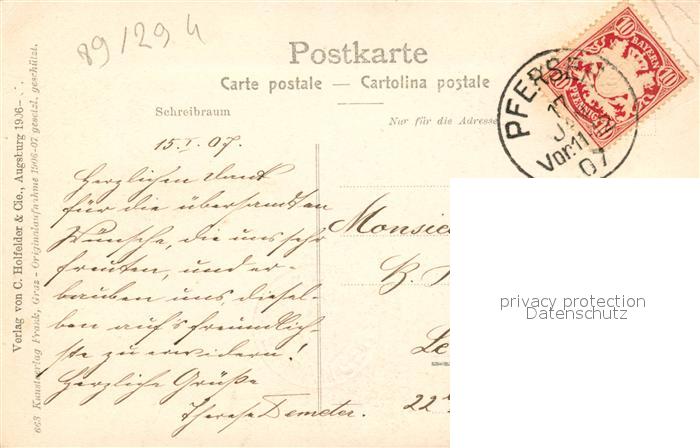 89/294
Postkarte
Carte postale — Cartolina postale
Schreibraum
Nur für die Adresse
10 BAYERN 10
PFENNIG
PFERSE
17
Vor. 11
07
15. I. 07.
Herzlichen Dank
für die übersandten
Wünsche, die uns sehr
freuten, und er-
lauben uns, diesel-
ben auf's freundlich-
ste zu erwidern!
Herzliche Grüße
Therese Demeter.
Monsieu
B.
Le
22
Verlag von C. Holfelder & Cie., Augsburg 1906
663 Kunstverlag Frank, Graz - Originalaufnahme 1906-07 gesetzl. geschützt.
privacy protection
Datenschutz